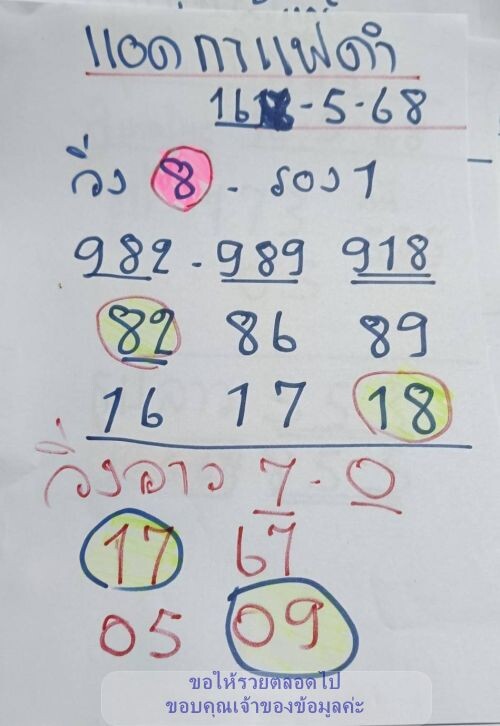 แอดกาแฟดำ
16 - 5 - 68
วิ่ง 8 - รอง 1
982 - 989 918
82 86 89
16 17 18
วิ่งลาว 7 - 0
17 67
05 09
ขอให้รวยตลอดไป
ขอบคุณเจ้าของข้อมูลค่ะ